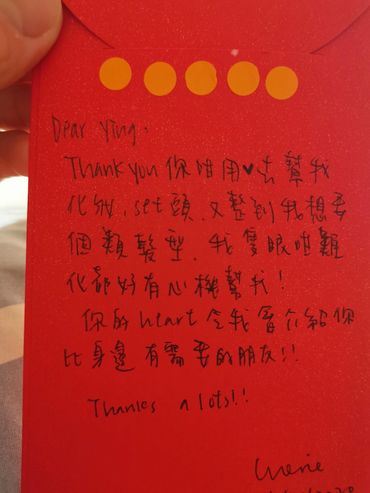 Dear Ying,
Thank you 你咁用♥去幫我
化妝, set頭, 又整到我想要
個類髮型, 我隻眼咁難
化都好有心機幫我!
你的heart令我會介紹給你
比身邊有需要的朋友!!
Thanks a lots!!
Cherie